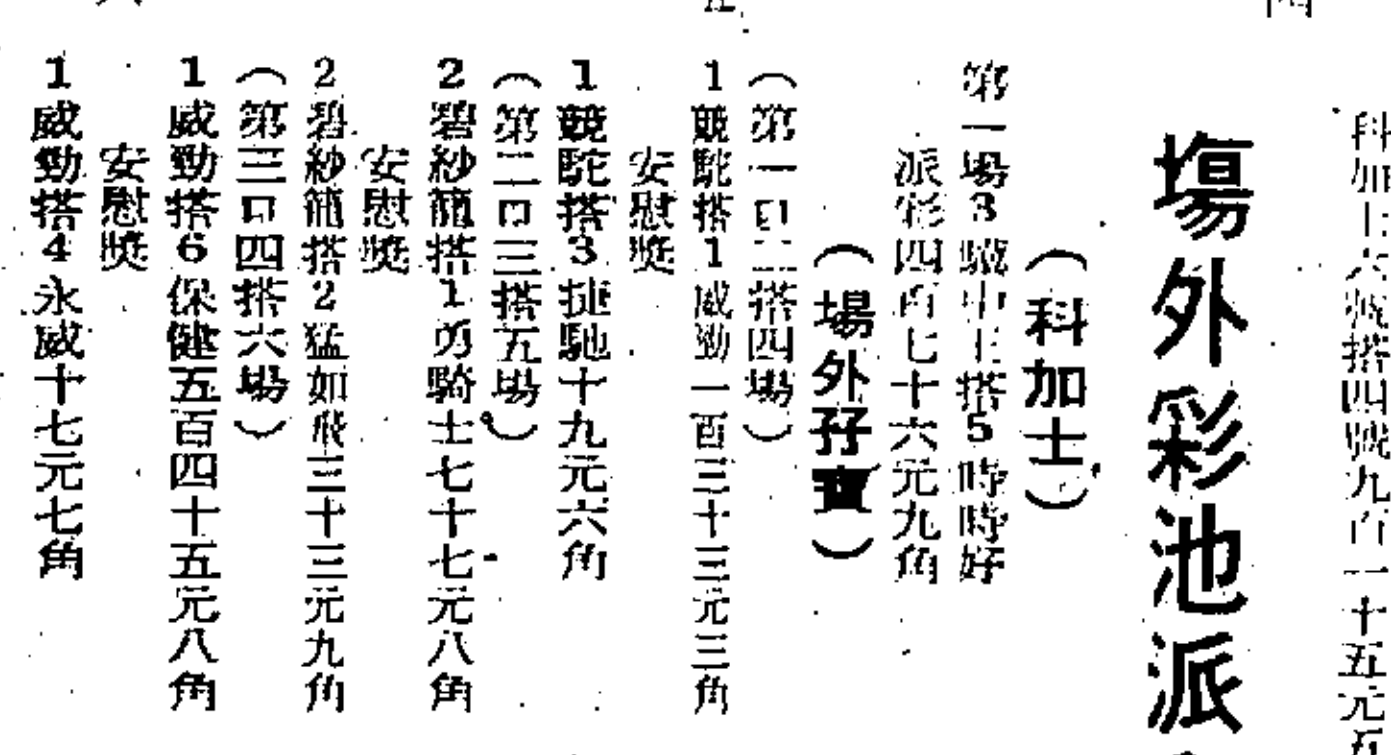 科加士六號搭四號九百一十五元五
場外彩池派
（科加士）
第一場3驥中王搭5時時好
派彩四百七十六元九角
（場外孖寶）
（第一口二搭四場）
1競駝搭1威勁一百三十三元三角
安慰獎
1競駝搭3捷馳十九元六角
（第二口三搭五場）
2碧紗籠搭1勇騎士七十七元八角
安慰獎
2碧紗籠搭2猛如飛三十三元九角
（第三口四搭六場）
1威勁搭6保健五百四十五元八角
安慰獎
1威勁搭4永威十七元七角